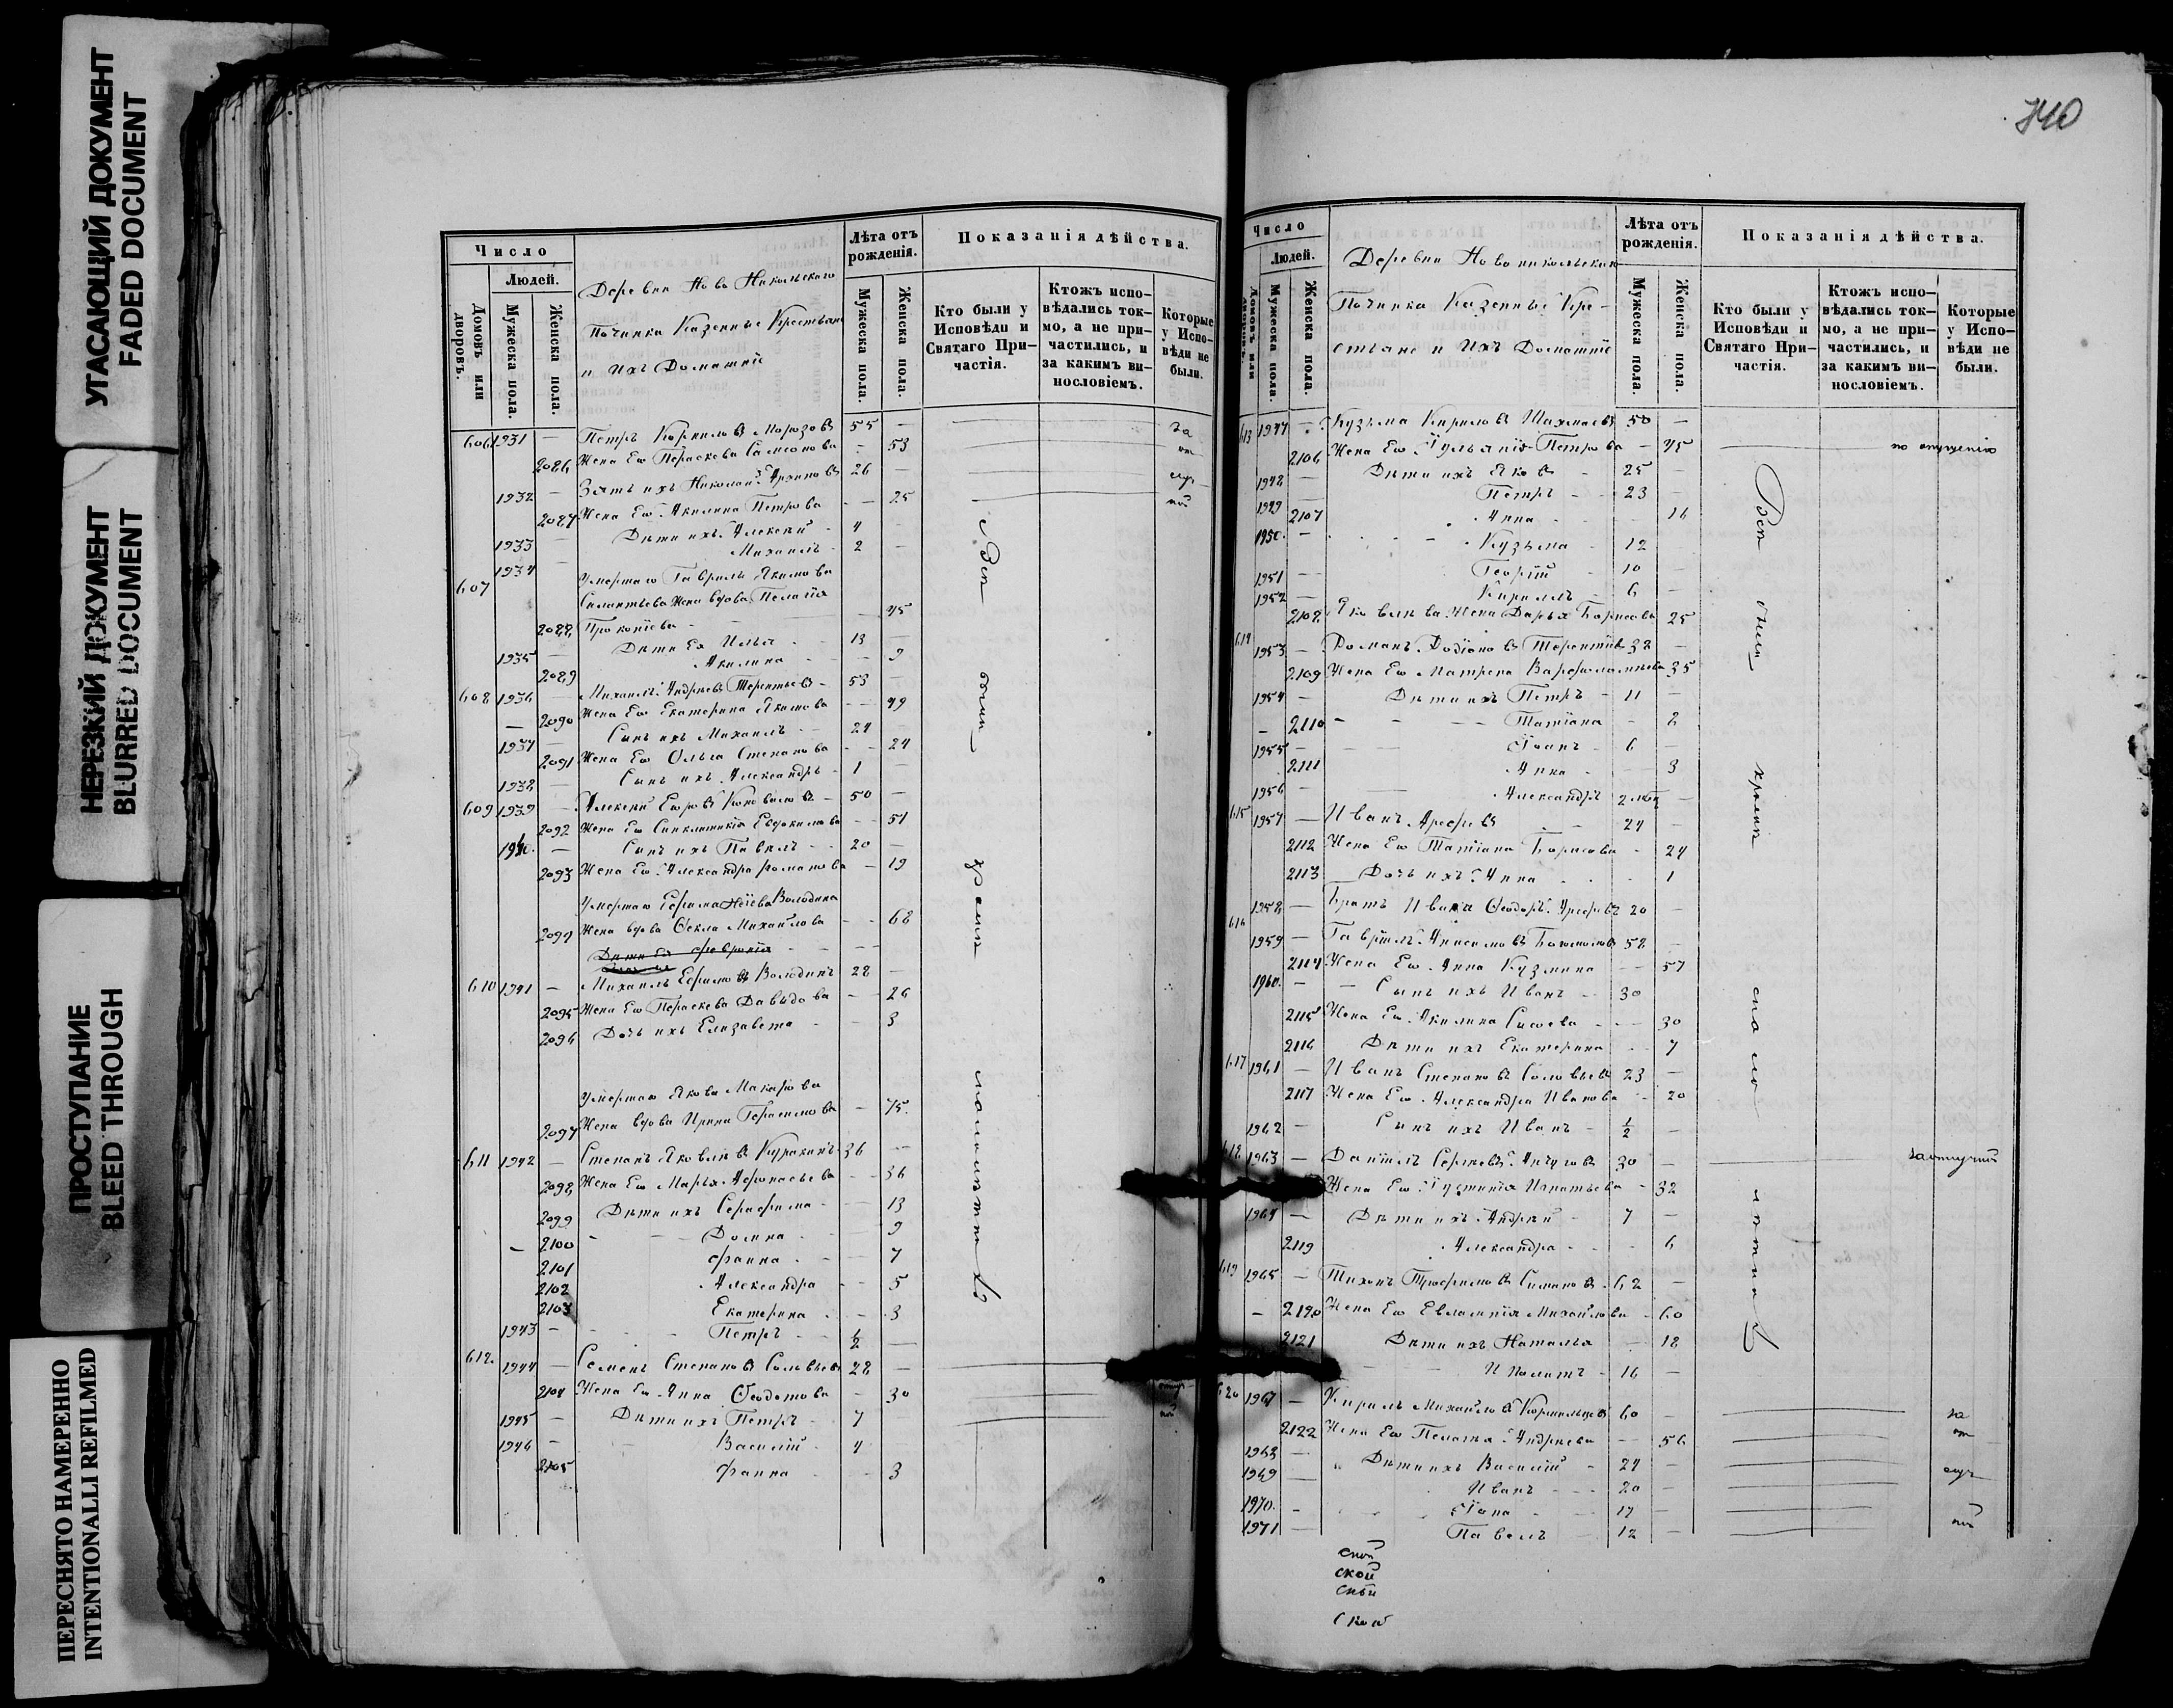 УГАСАЮЩИЙ ДОКУМЕНТ
FADED DOCUMENT
НЕРЕЗКИЙ ДОКУМЕНТ
BLURRED DOCUMENT
ПРОСТУПАНИЕ
BLEED THROUGH
ПЕРЕСНЯТО НАМЕРЕННО
INTENTIONALLI REFILMED
Число
Людей.
Домовъ или дворовъ.
Мужеска пола.
Женска пола.
Деревни Ново Никольскаго
Починка Казенные Крестьяне
и Ихъ Домашніе
Лѣта отъ рожденія.
Мужеска пола.
Женска пола.
Показанія дѣйства.
Кто были у Исповѣди и Святаго Причастія.
Ктожъ исповѣдались токмо, а не причастились, и за какимъ винословіемъ.
Которые у Исповѣди не были.
606 1931 — Петръ Корниловъ Морозовъ 55 —
2086 Жена Его Параскева Самсонова — 53
1932 — Зять ихъ Николай Архиповъ 26 —
2087 Жена Его Акилина Петрова — 25
1933 — Дѣти ихъ Алексѣй 4 —
1934 — Михаилъ 2 —
607 Умершаго Гаврила Якимова
Силантьева Жена вдова Пелагія
2088 Прокопіева — 45
1935 — Дѣти Ея Илья 13 —
2089 Акилина — 9
608 1936 Михаилъ Андреевъ Терентьевъ 53 —
2090 Жена Его Екатерина Якимова — 49
1937 — Сынъ ихъ Михаилъ 24
2091 Жена Его Ольга Степанова — 24
1938 — Сынъ ихъ Александръ 1 —
609 1939 — Алексѣй Егоровъ Коноваловъ 50 —
2092 Жена Его Синклитикія Евдокимова — 51
1940 — Сынъ ихъ Павелъ 20 —
2093 Жена Его Александра Романова — 19
Умершаго Ефима Володина
2094 Жена вдова Ѳекла Михайлова — 68
Дѣти Ея Февронія
610 1941 — Михаилъ Ефимовъ Володинъ 28 —
2095 Жена Его Параскева Давыдова — 26
2096 Дочь ихъ Елизавета — 3
Умершаго Якова Макарова
2097 Жена вдова Ирина Герасимова — 75
611 1942 — Степанъ Яковлевъ Куракинъ 36 —
2098 Жена Его Марья Афонасьева — 36
2099 Дѣти ихъ Серафима — 13
2100 Домна — 9
2101 Фаина — 7
2102 Александра — 5
2103 Екатерина — 3
1943 — Петръ 1/2 —
612 1944 — Семенъ Степановъ Соловьевъ 28 —
2104 Жена Его Анна Ѳеодотова — 30
1945 — Дѣти ихъ Петръ 7
1946 — Василій 4
2105 Фаина — 3
Всѣ были кромѣ малолѣтнихъ
за
от
луч
кой
340
Число
Людей.
Домовъ или дворовъ.
Мужеска пола.
Женска пола.
Деревни Новоникольскаго
Починка Казенные Кре-
стьяне и Ихъ Домашніе
Лѣта отъ рожденія.
Мужеска пола.
Женска пола.
Показанія дѣйства.
Кто были у Исповѣди и Святаго Причастія.
Ктожъ исповѣдались токмо, а не причастились, и за какимъ винословіемъ.
Которые у Исповѣди не были.
613 1947 Кузьма Кириловъ Шахмаевъ 50 —
2106 Жена Его Іуліанія Петрова — 45 по опущенію
1948 — Дѣти ихъ Яковъ 25 —
1949 Петръ 23 —
2107 Анна — 16
1950 — Кузьма 12
1951 — Георгій 10 —
1952 — Кириллъ 6 —
2108 Яковлева Жена Дарья Борисова 25
614 1953 — Романъ Родіоновъ Терентьевъ 38 —
2109 Жена Его Матрена Варфоломеева 35
1954 — Дѣти ихъ Петръ 11 —
2110 — Татіана — 8
1955 — Іоанъ 6 —
2111 Анна — 3
1956 — Александръ —
615 1957 — Иванъ Арефьевъ 24 —
2112 Жена Его Татіана Борисова — 24
2113 Дочь ихъ Анна — 1
1958 — Братъ Ивана Ѳеодоръ Арефьевъ 20 —
616 1959 — Гаврилъ Анисимовъ Богомоловъ 58 —
2114 Жена Его Анна Кузмина — 57
1960 — Сынъ ихъ Иванъ 30
2115 Жена Его Акилина Сысоева — 30
2116 Дѣти ихъ Екатерина — 7
617 1961 — Иванъ Степановъ Соловьевъ 23 —
2117 Жена Его Александра Иванова — 20
1962 — Сынъ ихъ Иванъ 1/2 —
618 1963 — Даніилъ Сергѣевъ 30 — за отлучкой
Жена Его Іустинія Игнатьева — 32
1964 — Дѣти ихъ Андрей 7 —
2119 Александра — 6
619 1965 — Тихонъ Трофимовъ Симановъ 62 —
2120 Жена Его Евлампія Михайлова — 60
2121 Дѣти ихъ Наталья — 18
Иполитъ 16 —
620 1967 — Кирилъ Михайловъ 60 —
2122 Жена Его Пелагія Андреева — 56
1968 — Дѣти ихъ Василій 24 —
1969 — Иванъ 20 —
1970 — Іона 17 —
1971 — Павелъ 12 —
Всѣ были кромѣ малолѣтнихъ
за
от
луч
кой
ской
ской